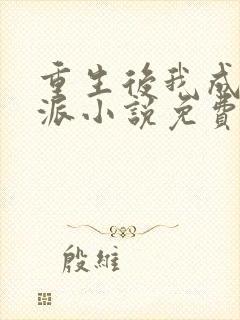 重生後我成
派小說免費
殷維